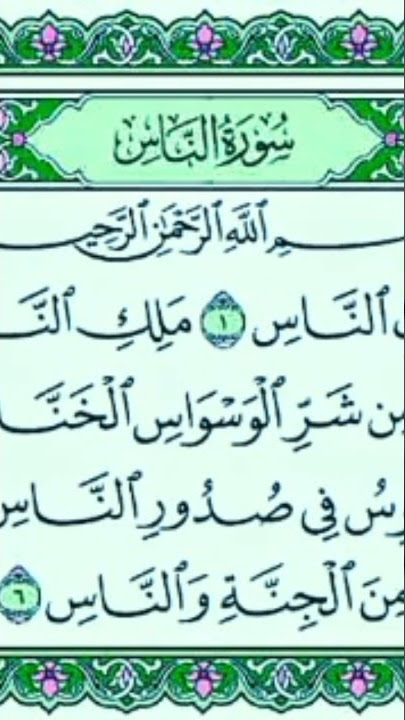 سُورَةُ النَّاسِ
ٱللَّهِ ٱلرَّحْمَٰنِ ٱلرَّحِيـ
ٱلنَّاسِ ١ مَلِكِ ٱلنَّـ
شَرِّ ٱلْوَسْوَاسِ ٱلْخَنَّا
فِى صُدُورِ ٱلنَّاسِ
مِنَ ٱلْجِنَّةِ وَٱلنَّاسِ ٦